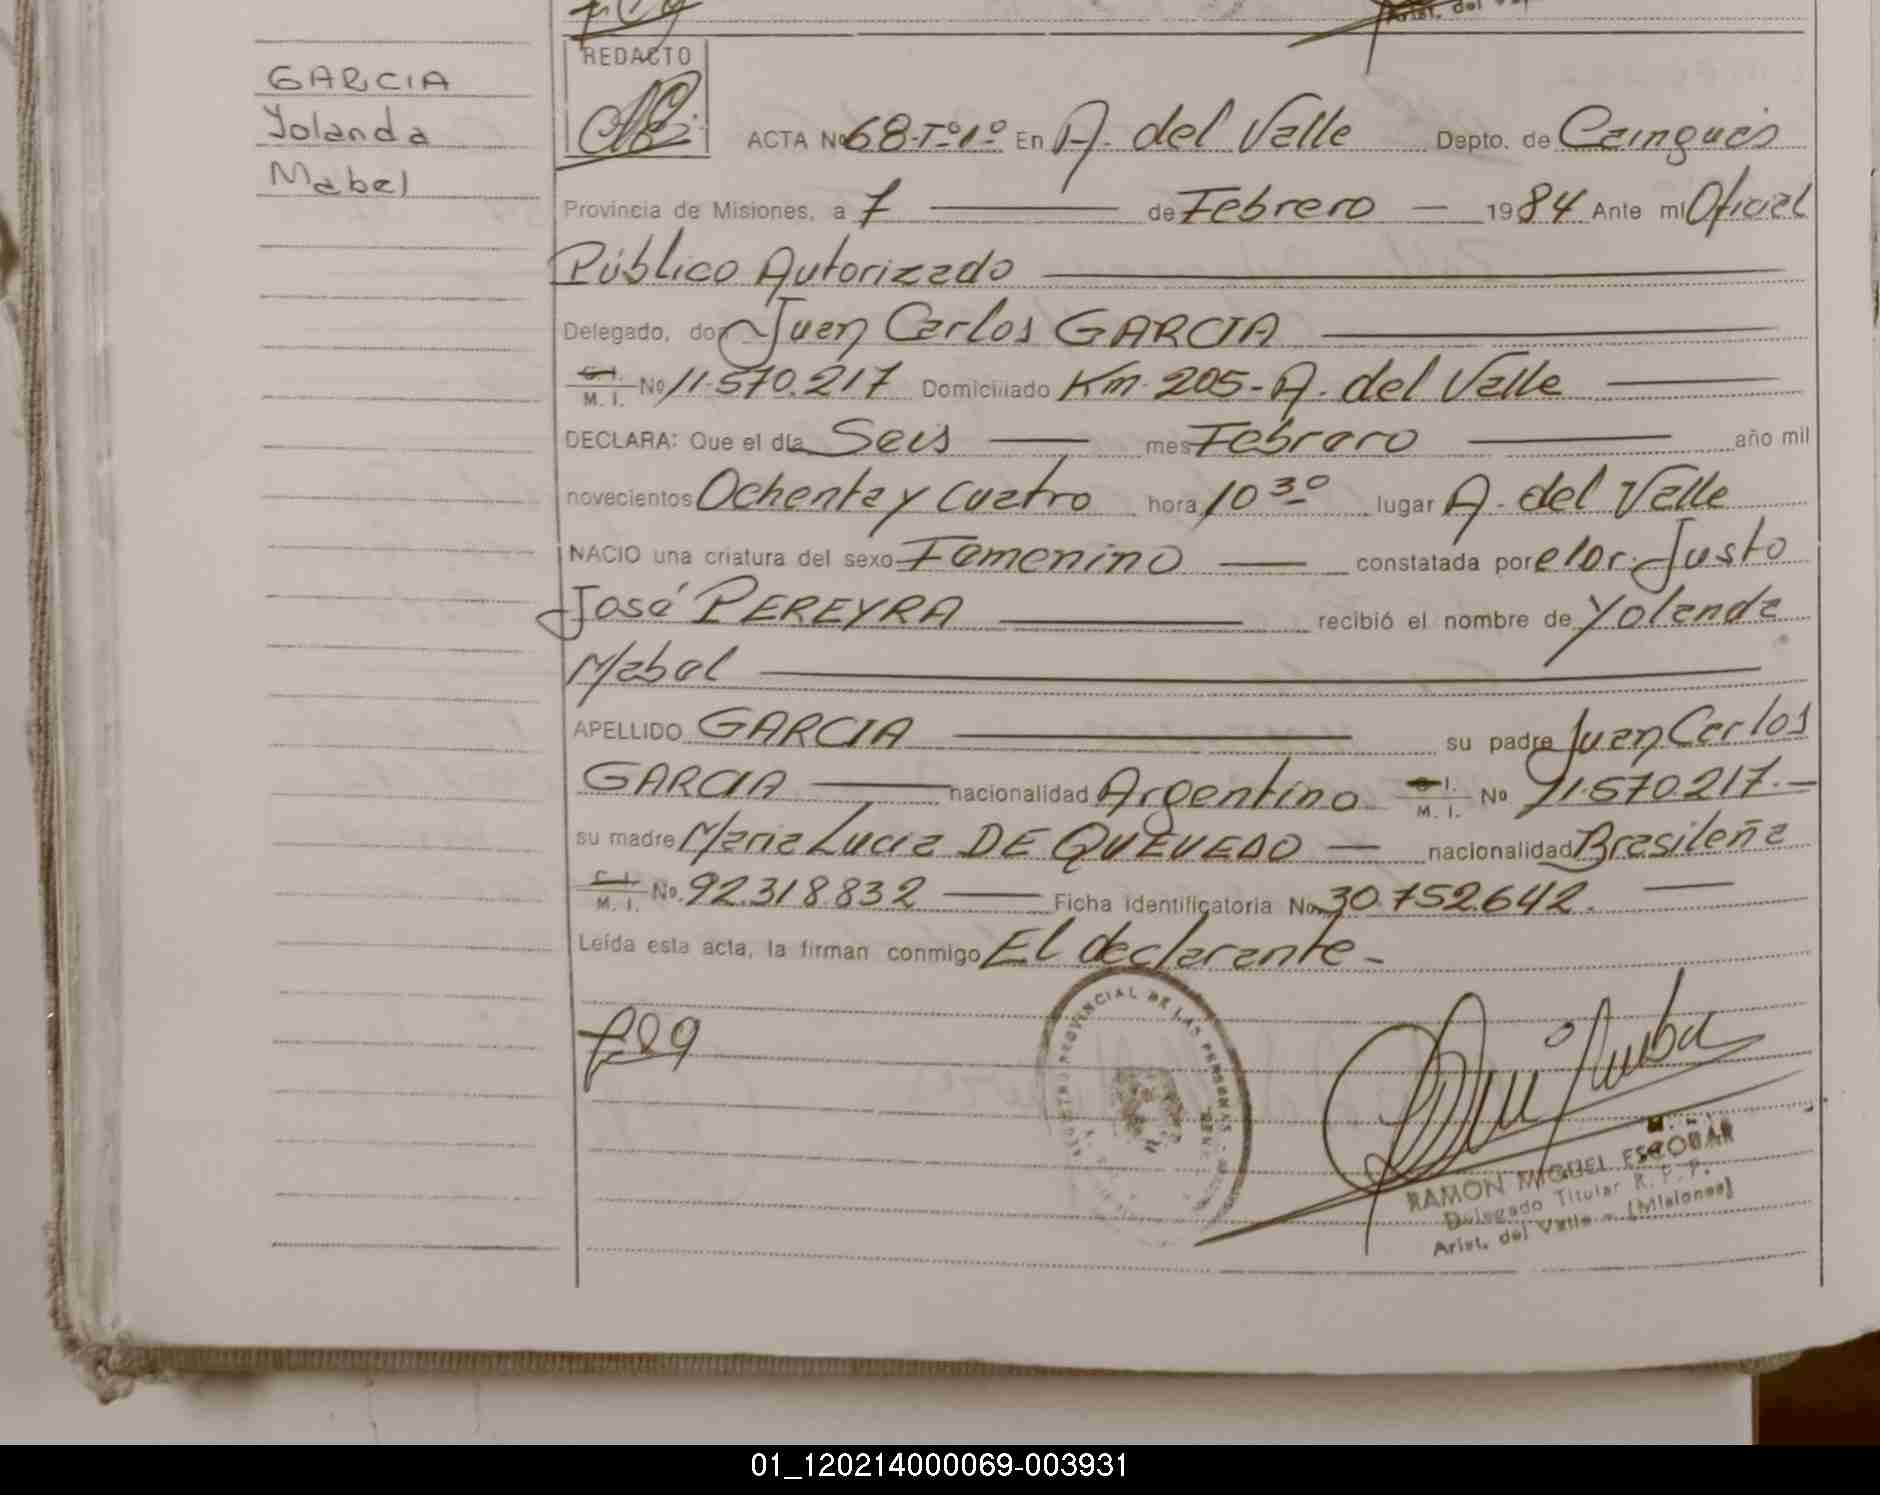 GARCIA
Yolanda
Mabel
REDACTO
ACTA Nº 68-Tº1º En A. del Valle Depto. de Cainguás
Provincia de Misiones, a 7 de Febrero 1984 Ante mí Oficial
Público Autorizado
Delegado, don Juan Carlos GARCIA
C. I. / M. I. Nº 11.570.217 Domiciliado Km. 205 - A. del Valle
DECLARA: Que el día Seis mes Febrero año mil
novecientos Ochenta y Cuatro hora 10 30 lugar A. del Valle
NACIO una criatura del sexo Femenino constatada por el Dr. Justo
José PEREYRA recibió el nombre de Yolanda
Mabel
APELLIDO GARCIA su padre Juan Carlos
GARCIA nacionalidad Argentino C. I. / M. I. Nº 11.570.217.-
su madre Maria Lucia DE QUEVEDO nacionalidad Brasileña
C. I. / M. I. No. 92.318.832 Ficha identificatoria No. 30.752.642.
Leída esta acta, la firman conmigo El declarante -
REGISTRO PROVINCIAL DE LAS PERSONAS
RAMON MIGUEL ESCOBAR
Delegado Titular R. P. P.
Arist. del Valle - (Misiones)
01_120214000069-003931